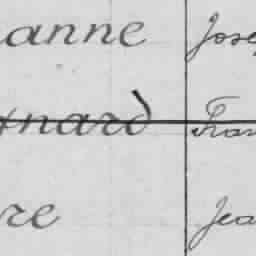 anne Jose
nard Fran
re Jea